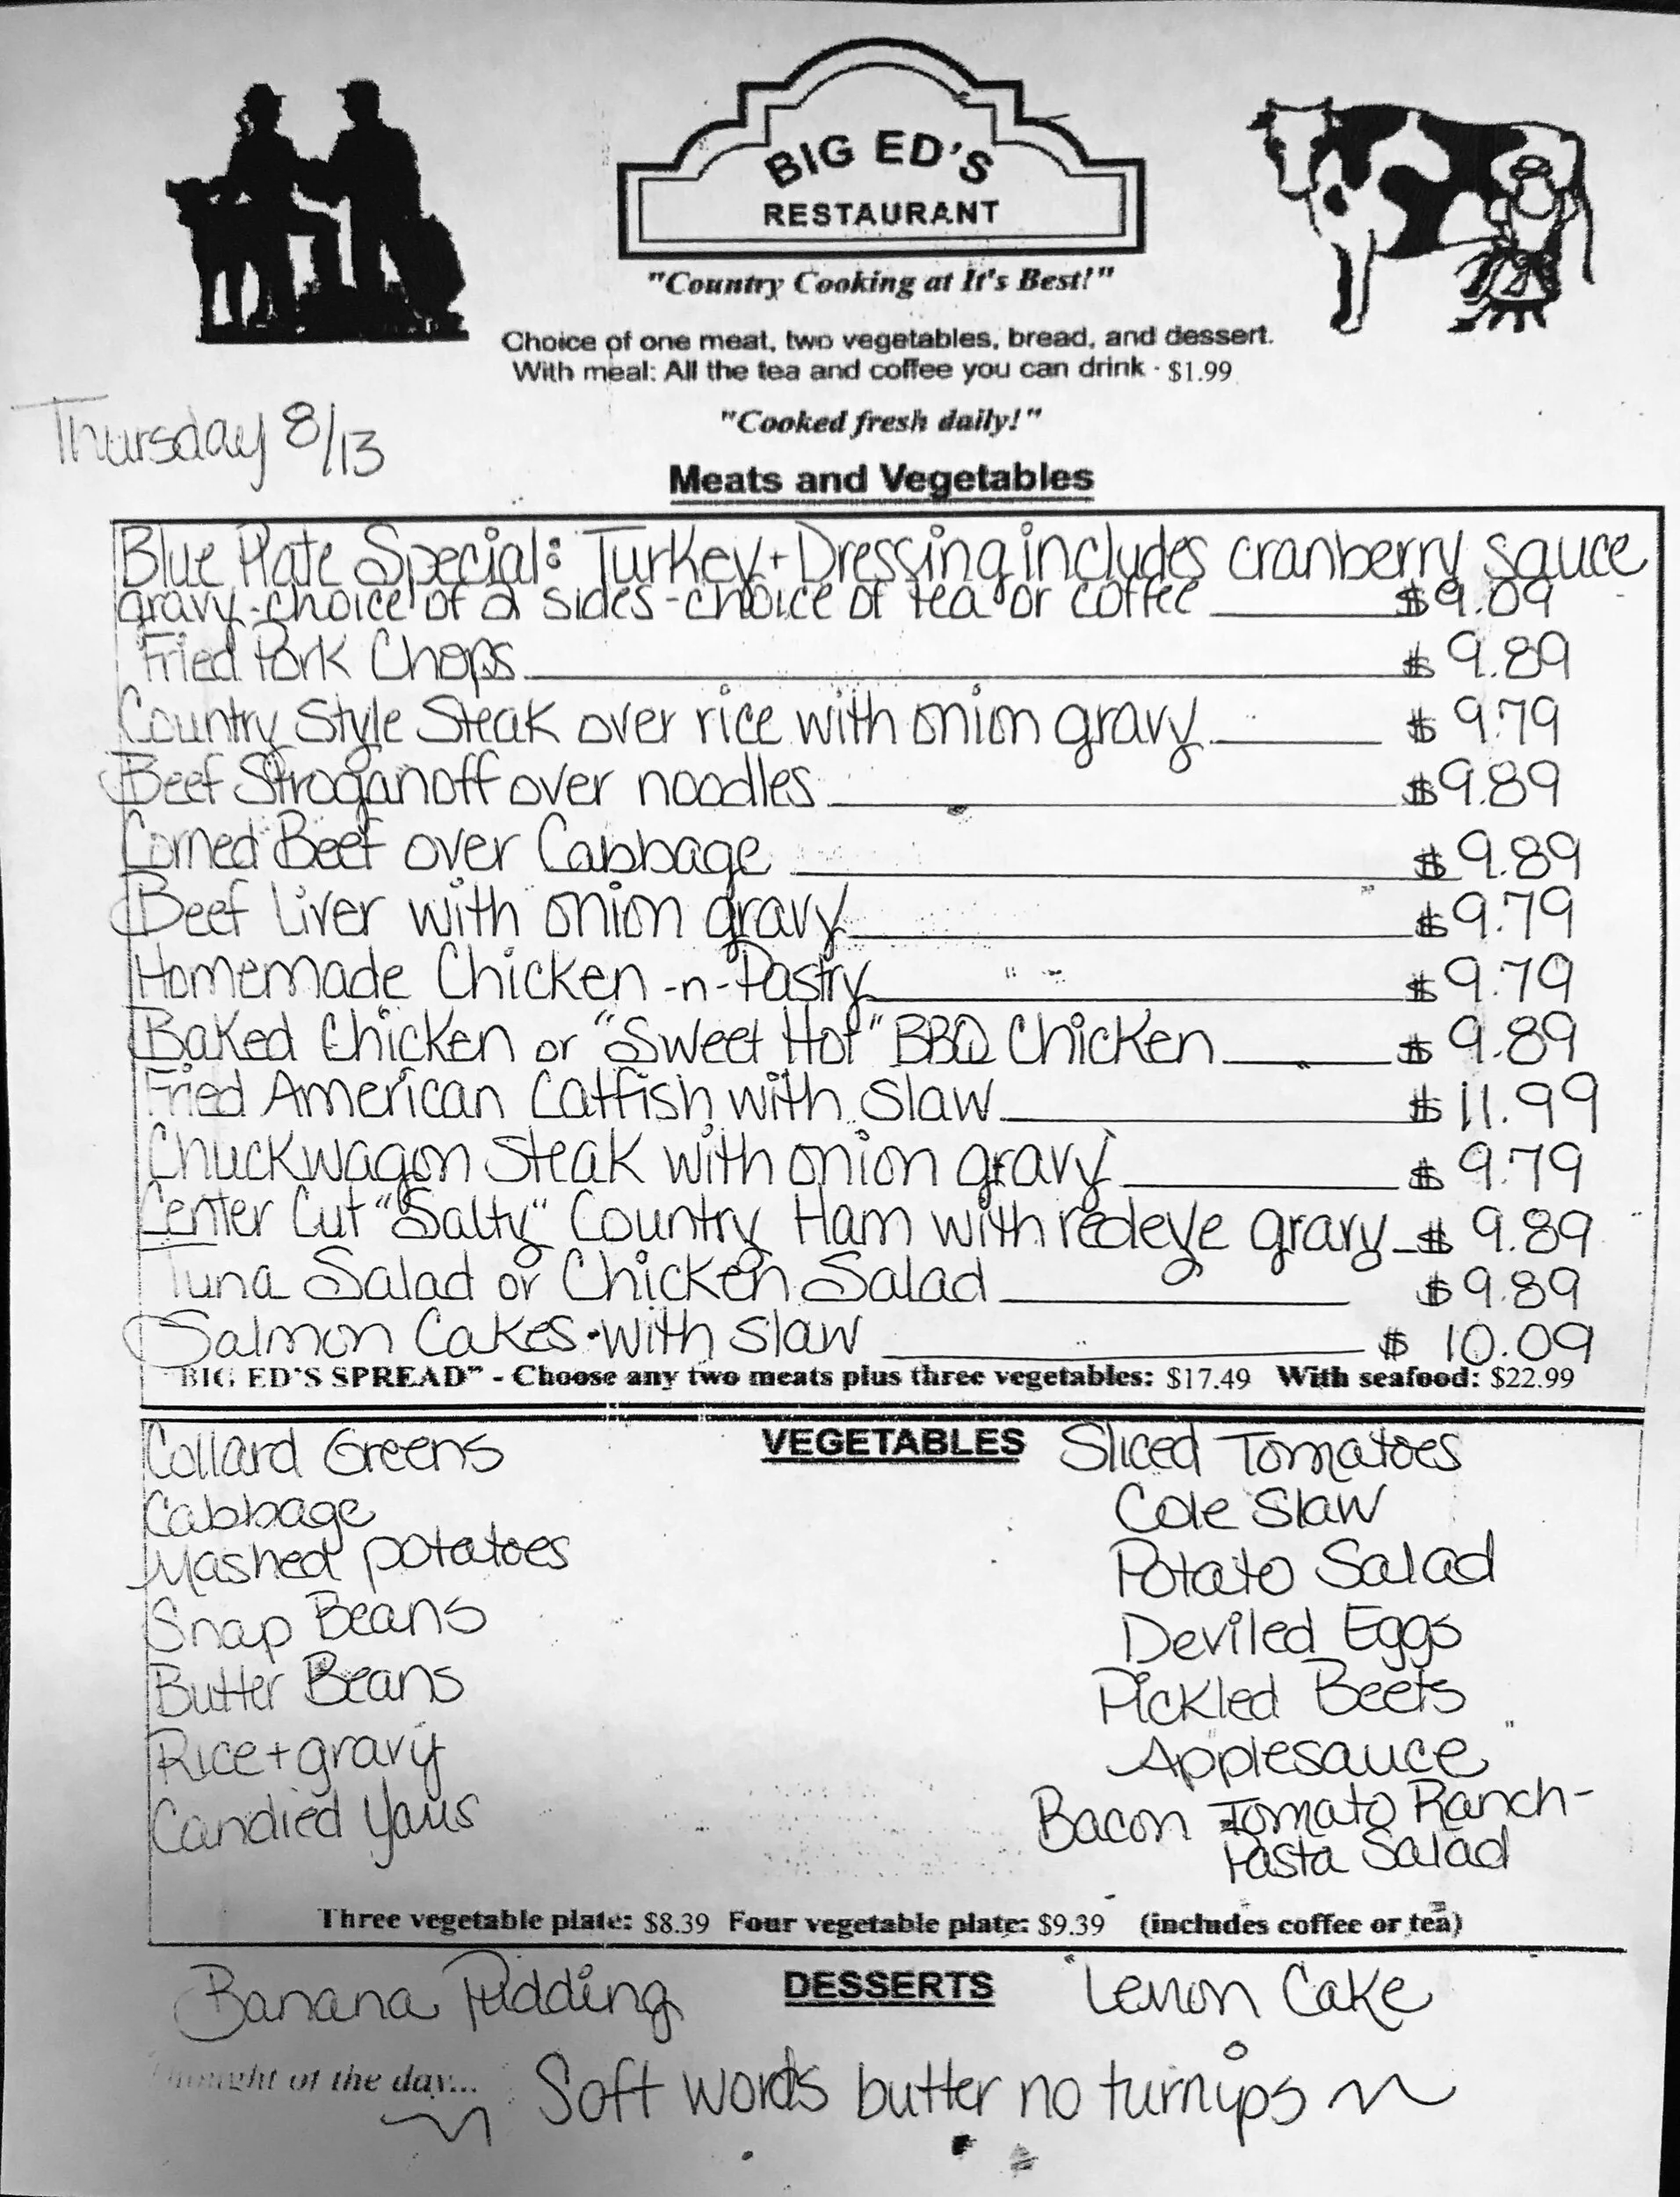 BIG ED'S
RESTAURANT
"Country Cooking at It's Best!"
Choice of one meat, two vegetables, bread, and dessert.
With meal: All the tea and coffee you can drink - $1.99
"Cooked fresh daily!"
Thursday 8/13
Meats and Vegetables
Blue Plate Special: Turkey + Dressing includes cranberry sauce
gravy - choice of 2 sides - choice of tea or coffee $9.09
Fried Pork Chops $9.89
Country Style Steak over rice with onion gravy $9.79
Beef Stroganoff over noodles $9.89
Corned Beef over Cabbage $9.89
Beef Liver with onion gravy $9.79
Homemade Chicken -n- Pastry $9.79
Baked Chicken or "Sweet Hot" BBQ Chicken $9.89
Fried American Catfish with slaw $11.99
Chuckwagon Steak with onion gravy $9.79
Center Cut "Salty" Country Ham with redeye gravy $9.89
Tuna Salad or Chicken Salad $9.89
Salmon Cakes with slaw $10.09
"BIG ED'S SPREAD" - Choose any two meats plus three vegetables: $17.49 With seafood: $22.99
VEGETABLES
Collard Greens
Cabbage
Mashed potatoes
Snap Beans
Butter Beans
Rice + gravy
Candied Yams
Sliced Tomatoes
Cole Slaw
Potato Salad
Deviled Eggs
Pickled Beets
Applesauce
Bacon Tomato Ranch-
Pasta Salad
Three vegetable plate: $8.39 Four vegetable plate: $9.39 (includes coffee or tea)
DESSERTS
Banana Pudding
Lemon Cake
Thought of the day... Soft words butter no turnips